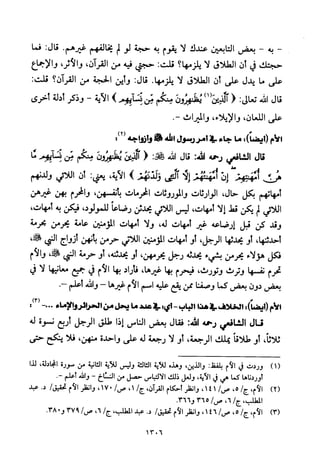 - به - بعض التابعين عندك لا يقوم به حجة لو لم يخالفهم غيرهم. قال: فما
حجتك في أن الطلاق لا يلزمها؟ قلت: حجتي فيه من القرآن، والأثر، والإجماع
على ما يدل على أن الطلاق لا يلزمها. قال: وأين الحجة من القرآن؟ قلت:
قال الله تعالى: ﴿ الَّذِينَ(١) يُظَاهِرُونَ مِنكُم مِّن نِّسَآئِهِم ﴾ الآية - وذكر أدلة أخرى
على اللعان، والإيلاء، والميراث -.
الأم (أيضاً): ما جاء في أمر رسول الله ﷺ وأزواجه(٢)
قال الشافعي رحمه الله: قال الله ﷻ: ﴿ الَّذِينَ يُظَاهِرُونَ مِنكُم مِّن نِّسَآئِهِم مَّا
هُنَّ أُمَّهَاتِهِمْ إِنْ أُمَّهَاتُهُمْ إِلَّا الَّائِي وَلَدْنَهُمْ ﴾ الآية، يعني: أن اللائي ولدنهم
أمهاتهم بكل حال، الوارثات والموروثات المحرمات بأنفسهن، والمحرم بهن غيرهن
اللائي لم يكن قط إلا أمهات، ليس اللائي يحدثن رضاعاً للمولود، فيكن به أمهات،
وقد كن قبل إرضاعه غير أمهات له، ولا أمهات المؤمنين عامة يحرمن بحرمة
أحدثنها، أو يحدثها الرجل، أو أمهات المؤمنين اللائي حرمن بأنهن أزواج النبي ﷺ،
فكل هؤلاء يحرمن بشيء يحدثه رجل يحرمهن، أو يحدثنه، أو حرمة النبي ﷺ، والأم
تحرم نفسها وترث وتورث، فيحرم بها غيرها، فأراد بها الأم في جميع معانيها لا في
بعض دون بعض كما وصفنا ممن يقع عليه اسم الأم غيرها - والله أعلم -.
الأم (أيضاً): الخلاف في هذا الباب - أي: في عدد ما يحل من الحرائر والإماء و...(٣)
قال الشافعي رحمه الله: فقال بعض الناس إذا طلق الرجل أربع نسوة له
ثلاثاً، أو طلاقاً يملك الرجعة، أو لا رجعة له على واحدة منهن، فلا ينكح حتى
(١) وردت في الأم بلفظ: والذين، وهذه للآية الثالثة وليس للآية الثانية من سورة المجادلة، لذا
أوردناها كما هي في الآية، ولعل ذلك الالتباس حصل من النساخ - والله أعلم -.
(٢) الأم، ج/ ٥، ص/ ١٤١، وانظر أحكام القرآن، ج/ ١، ص/ ١٧٠، وانظر الأم تحقيق/ د. عبد
المطلب، ج/ ٦، ص/ ٣٦٥ و٣٦٦.
(٣) الأم، ج/ ٥، ص/ ١٤٦، وانظر الأم تحقيق/ د. عبد المطلب، ج/ ٦، ص/ ٣٧٩ و٣٨٠.
١٣٠٦